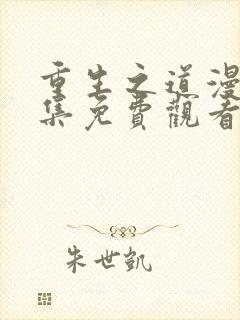 重生之道漫
集免費觀看
朱世凱